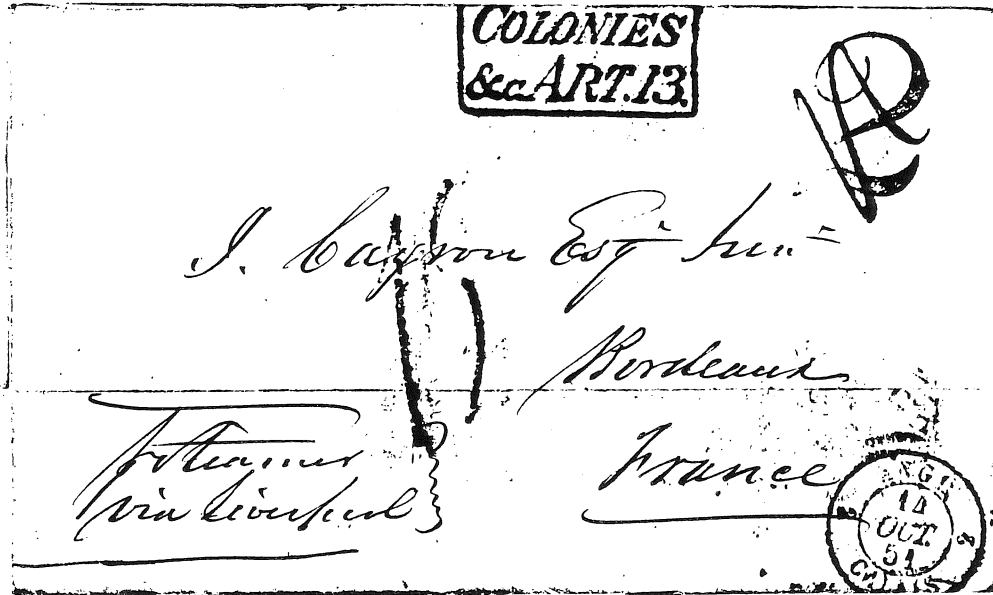 COLONIES
&c. ART.13.
J. Cayrou Esqr Junr
Bordeaux
France
pr Steamer
via Liverpool
ANGL.
14
OCT.
51
CALAIS